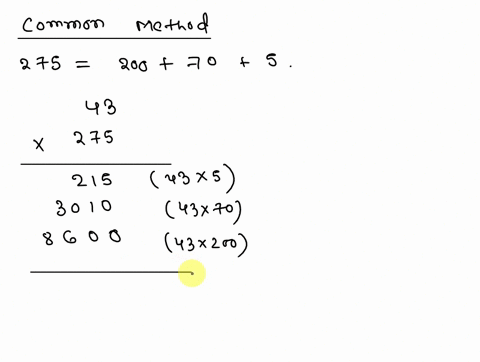 Common Method
275 = 200 + 70 + 5.
43
x 275
215 (43 x 5)
3010 (43 x 70)
8600 (43 x 200)